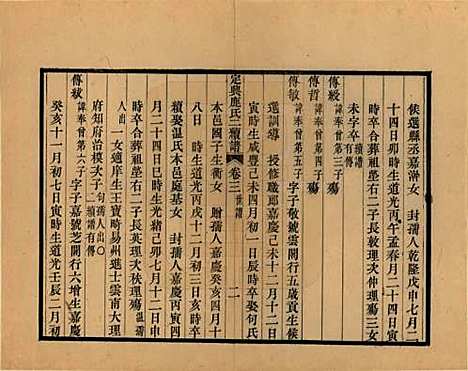 候選縣丞嘉澍女 封孺人乾隆戊申七月二
十四日卯時生道光丙午孟春月二十四日寅
時卒合葬祖塋右二子長敦理次仲理殤三女
未字卒 續譜有傳
傳毅 諱奉曾第三子殤
傳哲 諱奉曾第四子殤
傳敏 諱奉曾第五子 字子敬號雲閣行五歲貢生候
選訓導 授修職郎嘉慶己未十二月十二日
寅時生咸豐己未四月初一日辰時卒娶何氏
定興鹿氏二續譜 卷三 世譜 二
本邑國子生衡女 贈孺人嘉慶癸亥四月十
八日 時生道光丙戌十二月初三日亥時卒
續娶温氏本邑庭基女 封孺人嘉慶丙寅四
月二十四日巳時生光緒己卯七月十二日申
時卒合葬祖塋右二子長英理次秩理殤 温孺
人出 一女適庠生王寶疇易州進士雲南大理
府知府治模次子 何孺人出○續譜有傳
傳紱 諱奉曾第六子 字子嘉號芝閣行六增生嘉慶
癸亥十一月初七日寅時生道光壬辰二月初